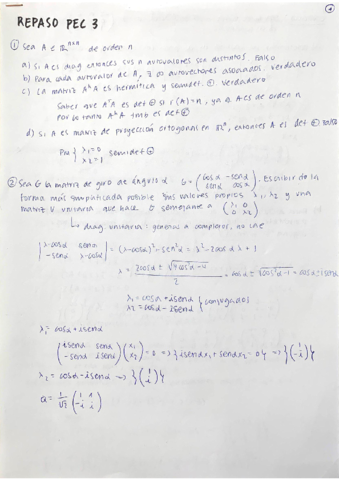 REPASO PEC 3
① Sea A ∈ ℝⁿˣⁿ de orden n
a) si A es diag entonces sus n autovalores son distintos. Falso
b) Para cada autovalor de A, ∃ ∞ autovectores asociados. verdadero
c) La matriz AᴴA es hermítica y semidef. ⊕ verdadero
Saber que AᴴA es def ⊕ si r(A)=n, ya que A es de orden n
por lo tanto AᴴA es def ⊕
d) si A es matriz de proyección ortogonal en ℝⁿ, entonces A es def ⊕ Falso
PM { λ₁=0 semidef ⊕
λ₂=1
② Sea G la matriz de giro de ángulo α G = (cosα -senα
senα cosα). Escribir de la
forma más simplificada posible sus valores propios λ₁, λ₂ y una
matriz U unitaria que hace G semejante a (λ₁ 0
0 λ₂)
↳ diag. unitaria: general a complejos, no
|λ-cosα senα
-senα λ-cosα| = (λ-cosα)²+sen²α = λ²-2cosα λ + 1
λ = (2cosα ± √(4cos²α-4))/2 = cosα ± √(cos²α-1) = cosα ± i senα
λ₁ = cosα + i senα } conjugados
λ₂ = cosα - i senα
λ₁ = cosα + i senα
(i senα senα
-senα i senα)(x₁
x₂) = 0 => {i senα x₁ + senα x₂ = 0} => {(1
-i)}
λ₂ = cosα - i senα => {(1
i)}
Q = 1/√2 (1 1
-i i)